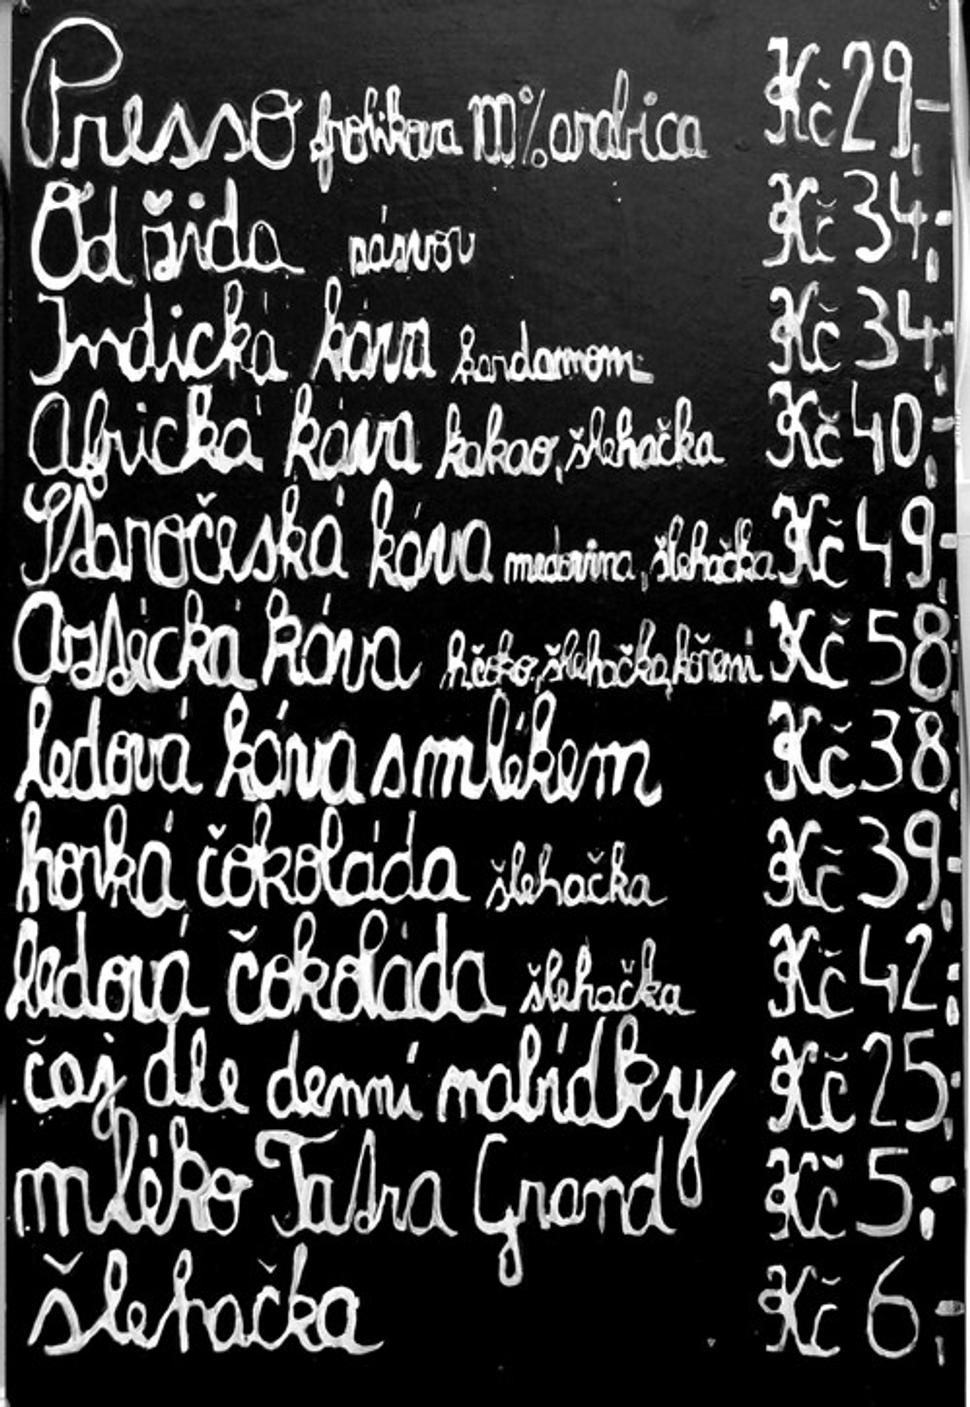 Presso frolíkova 100% arabica Kč 29,-
Od žida zázvor Kč 34,-
Indická káva kardamom Kč 34,-
Africká káva kakao, šlehačka Kč 40,-
Staročeská káva medovina, šlehačka Kč 49,-
Aztécká káva šlehačka, koření Kč 58,-
ledová káva s mlékem Kč 38,-
horká čokoláda šlehačka Kč 39,-
ledová čokoláda šlehačka Kč 42,-
čaj dle denní nabídky Kč 25,-
mléko Tatra Grand Kč 5,-
šlehačka Kč 6,-